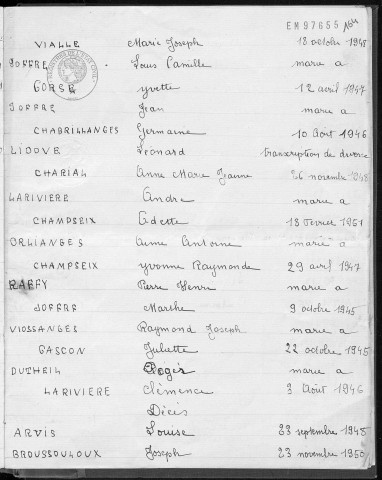 EM97655
VIALLE Marie Joseph 18 octobre 1948
JOFFRE Louis Camille marie a
GORSE yvette 12 avril 1947
JOFFRE Jean marie a
CHABRILLANGES Germaine 10 Aout 1946
LIDOVE Léonard transcription de divorce
CHARIAL Anne Marie Jeanne 26 novembre 1948
LARIVIERE Andre marie a
CHAMPSEIX Odette 18 Fevrier 1951
ORLIANGES Aime Antoine marie a
CHAMPSEIX yvonne Raymonde 29 avril 1947
RAFFY Pierre Henri marie a
JOFFRE Marthe 9 octobre 1945
VIOSSANGES Raymond Joseph marie a
GASCON Juliette 22 octobre 1945
DUTHEIL Roger marie a
LARIVIERE Clémence 3 Aout 1946
Décès
ARVIS Louise 23 septembre 1945
BROUSSOULOUX Joseph 23 novembre 1950